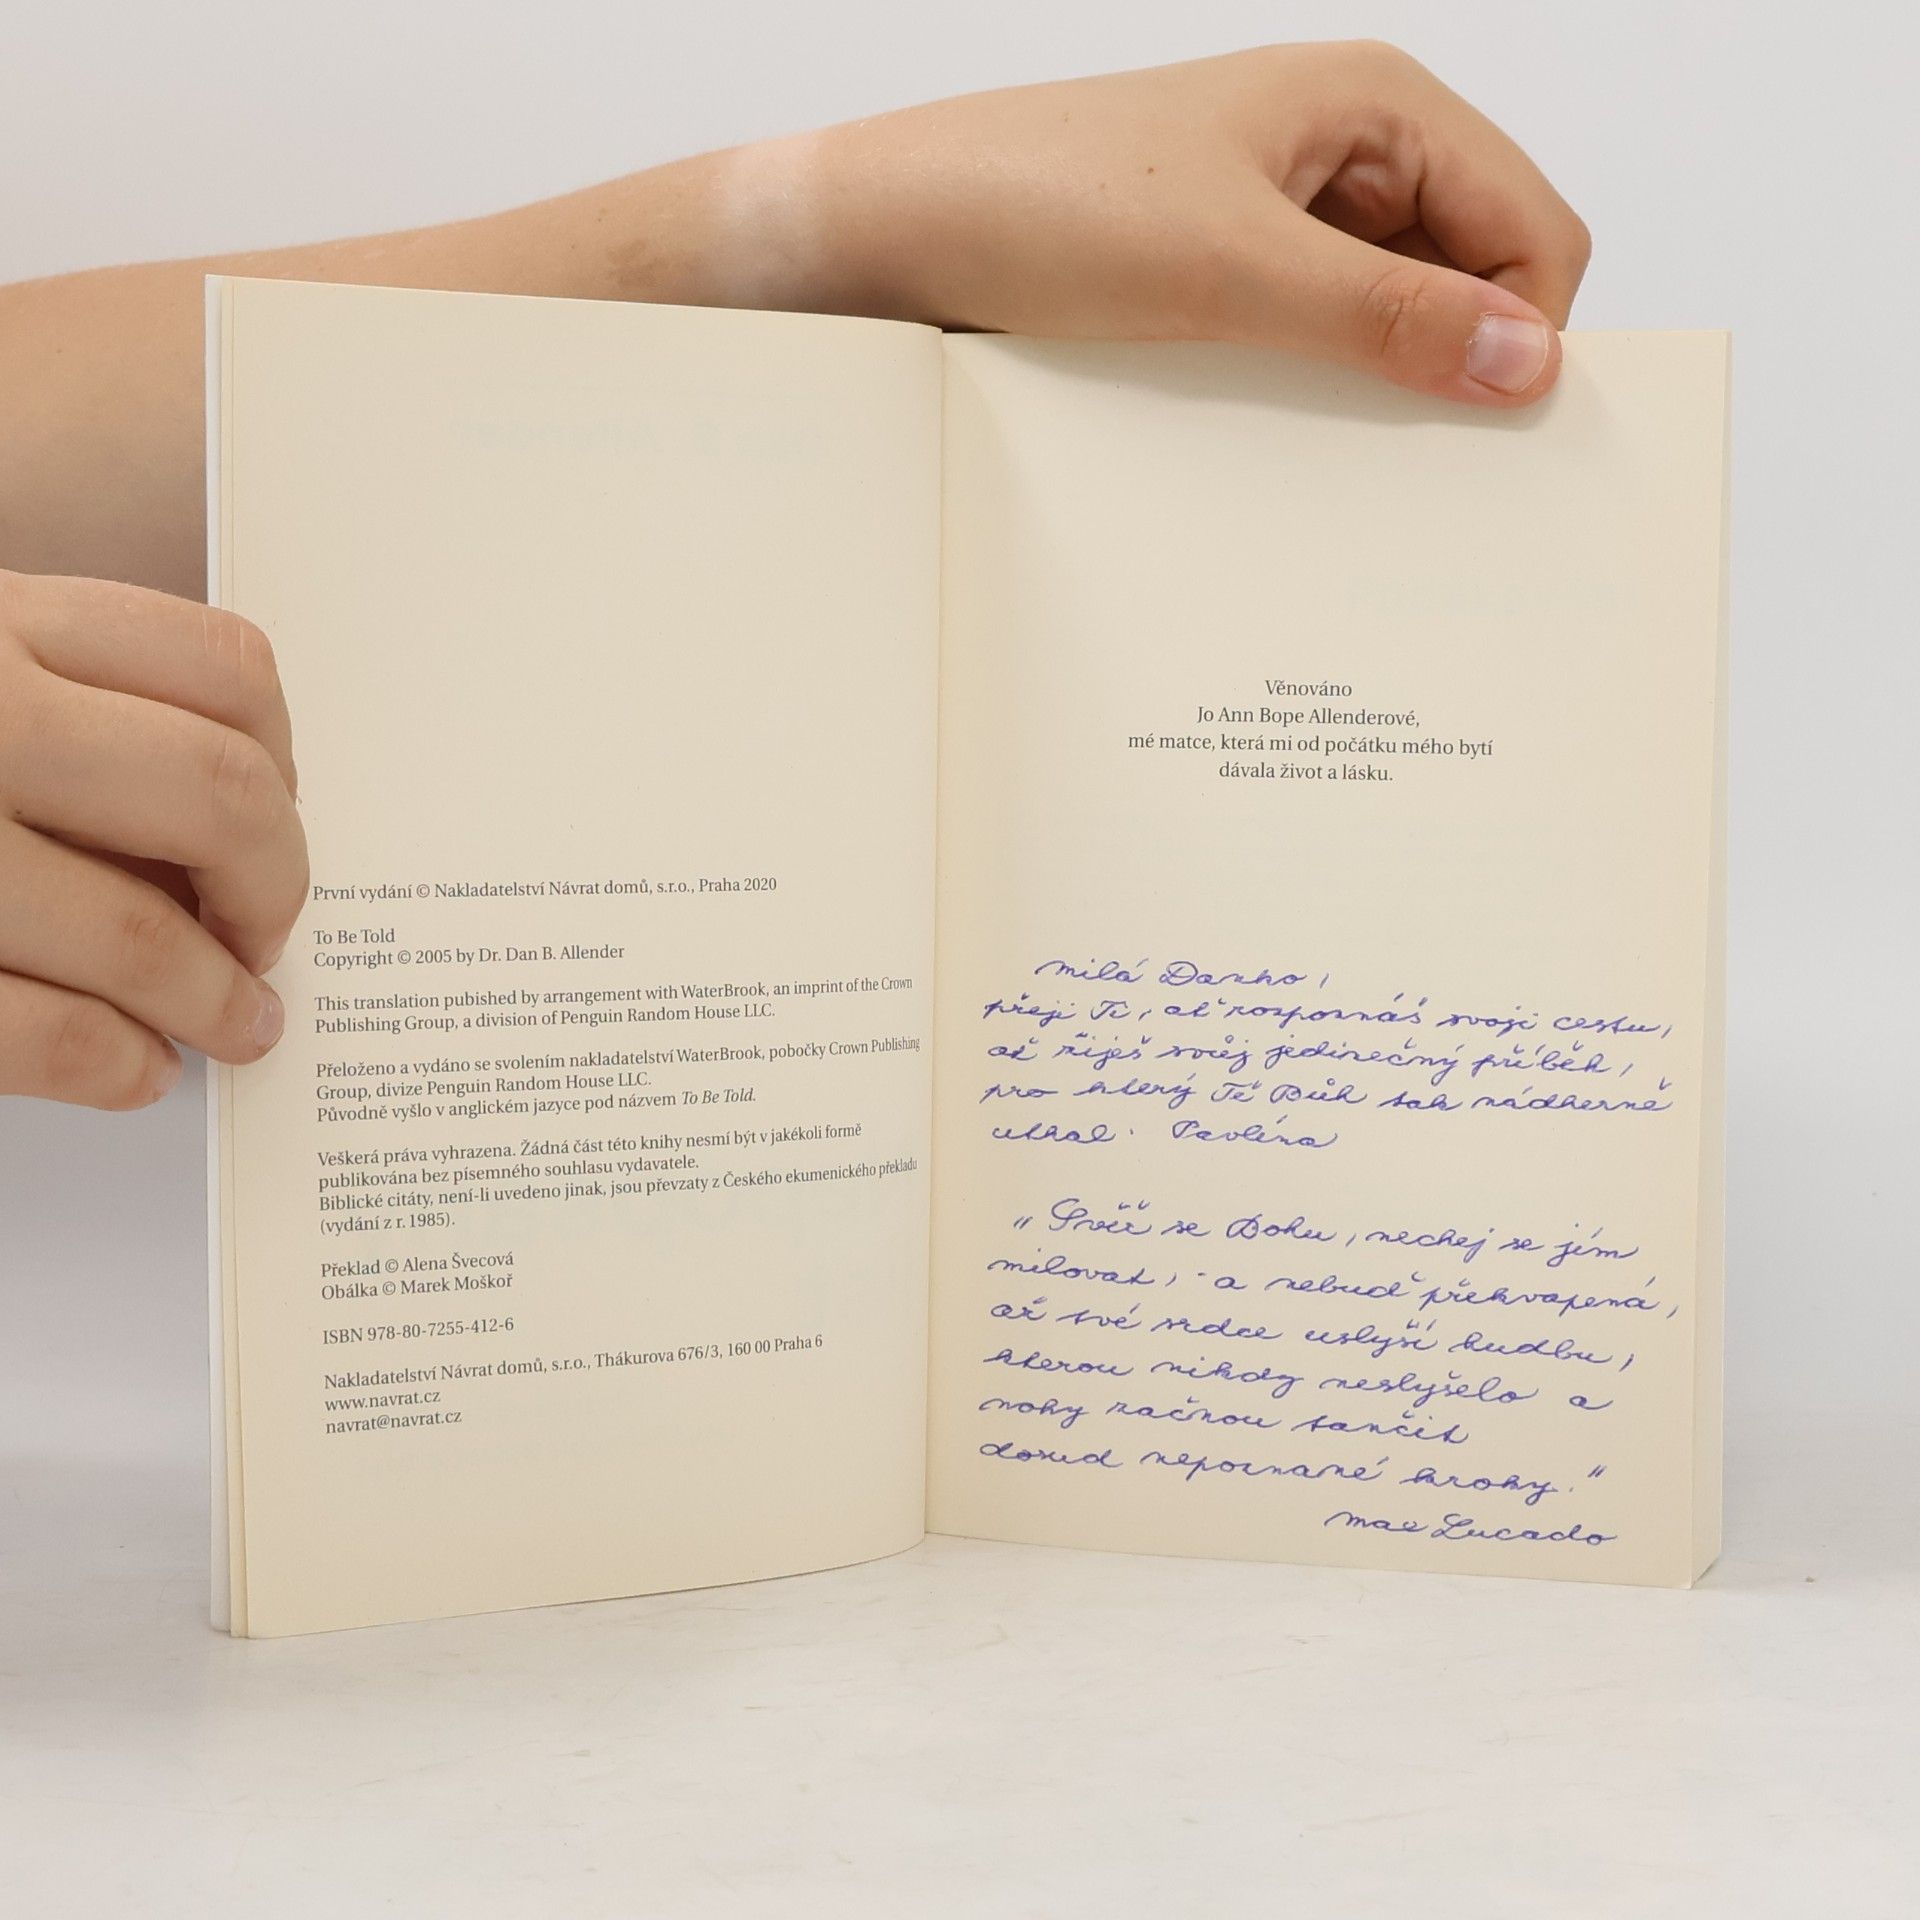 První vydání © Nakladatelství Návrat domů, s.r.o., Praha 2020
To Be Told
Copyright © 2005 by Dr. Dan B. Allender
This translation pubished by arrangement with WaterBrook, an imprint of the Crown
Publishing Group, a division of Penguin Random House LLC.
Přeloženo a vydáno se svolením nakladatelství WaterBrook, pobočky Crown Publishing
Group, divize Penguin Random House LLC.
Původně vyšlo v anglickém jazyce pod názvem To Be Told.
Veškerá práva vyhrazena. Žádná část této knihy nesmí být v jakékoli formě
publikována bez písemného souhlasu vydavatele.
Biblické citáty, není-li uvedeno jinak, jsou převzaty z Českého ekumenického překladu
(vydání z r. 1985).
Překlad © Alena Švecová
Obálka © Marek Moškoř
ISBN 978-80-7255-412-6
Nakladatelství Návrat domů, s.r.o., Thákurova 676/3, 160 00 Praha 6
www.navrat.cz
navrat@navrat.cz
Věnováno
Jo Ann Bope Allenderové,
mé matce, která mi od počátku mého bytí
dávala život a lásku.
Milá Danko,
přeji Ti, ať rozpoznáš svoji cestu,
ať žiješ svůj jedinečný příběh,
pro který Tě Bůh tak nádherně
utkal. Pavlína
"Svěř se Bohu, nechej se jím
milovat, - a nebuď překvapená,
až tvé srdce uslyší hudbu,
kterou nikdy neslyšelo a
nohy začnou tančit
dosud nepoznané kroky."
Max Lucado